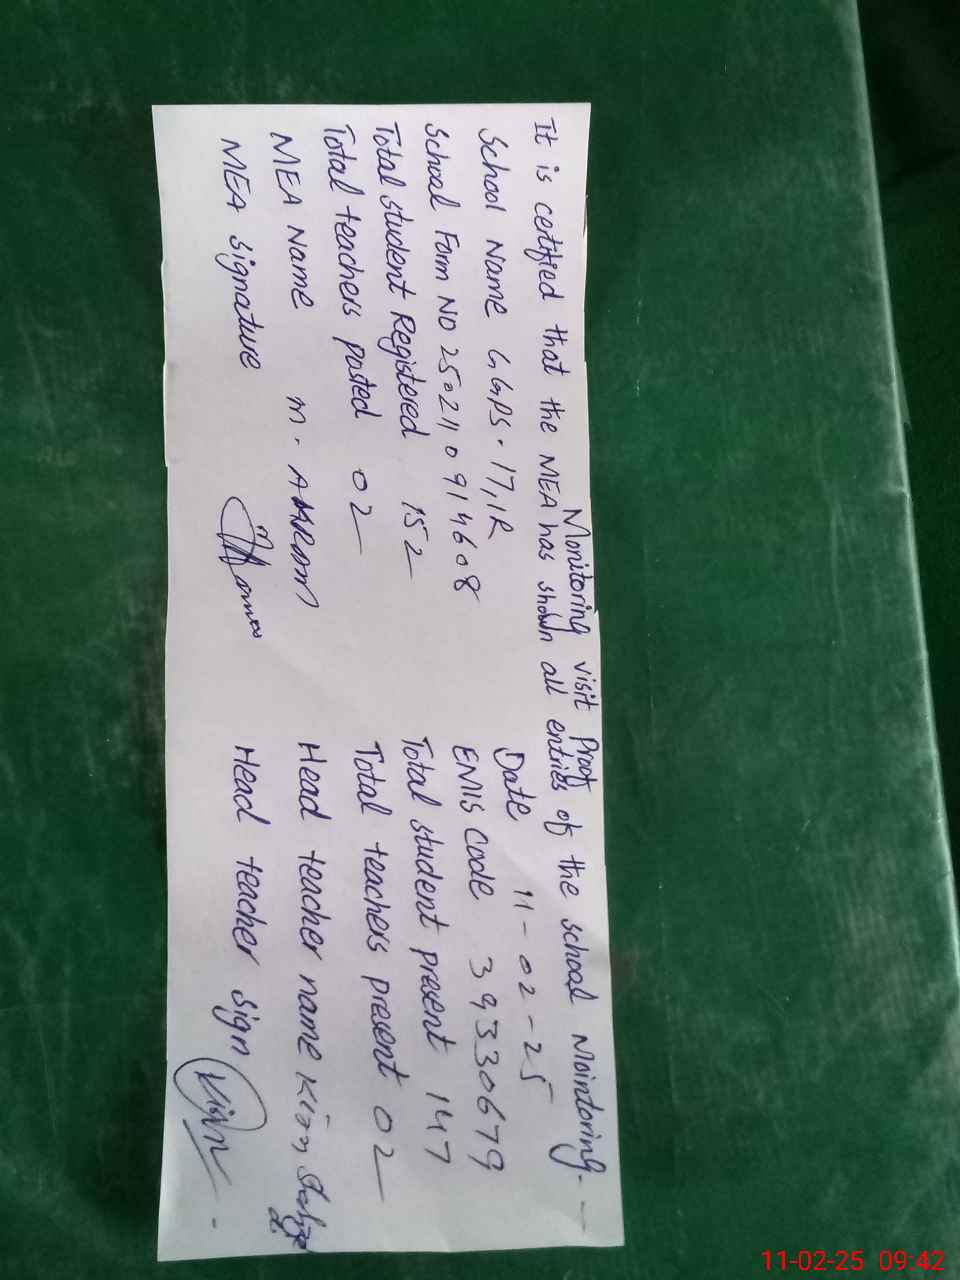 Monitoring visit Proof
It is certified that the MEA has shown all entries of the school Mointoring.
School Name G.GPS. 17,1R Date 11-02-25
School Form NO 2502110914608 EMIS Code 39330679
Total student Registered 152 Total student present 147
Total teachers posted 02 Total teachers present 02
MEA Name M. AKRAM Head teacher name Kiran
MEA signature Head teacher sign
11-02-25 09:42